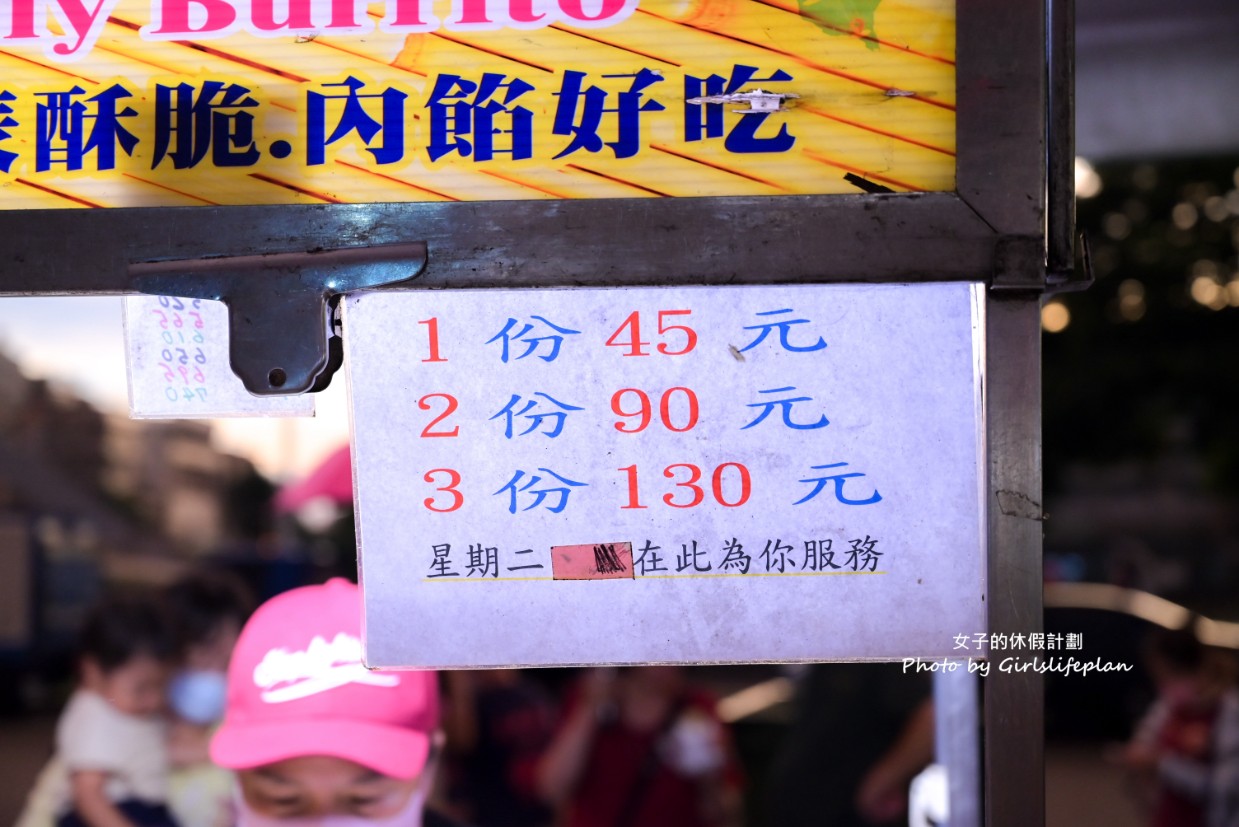 Burrito
酥脆.內餡好吃
1 份 45 元
2 份 90 元
3 份 130 元
星期二 在此為你服務
女子的休假計劃
Photo by Girlslifeplan